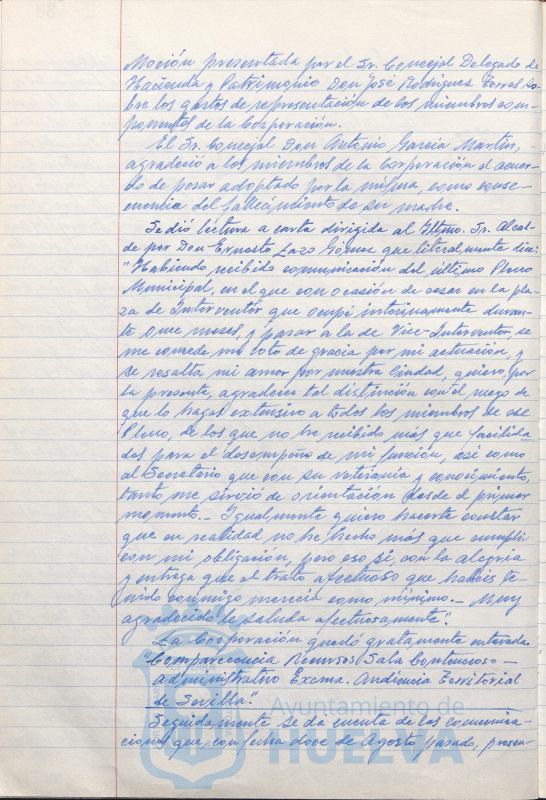 Moción presentada por el Sr. Concejal Delegado de
Hacienda y Patrimonio Don José Rodríguez Torres so-
bre los gastos de representación de los miembros com-
ponentes de la Corporación.
El Sr. Concejal Don Antonio García Martín,
agradeció a los miembros de la Corporación el acuer-
do de pesar adoptado por la misma, como conse-
cuencia del fallecimiento de su madre.
Se dió lectura a carta dirigida al Iltmo. Sr. Alcal-
de por Don Ernesto Lazo Gómez que literalmente dice:
"Habiendo recibido comunicación del último Pleno
Municipal, en el que con ocasión de cesar en la pla-
za de Interventor que ocupé interinamente duran-
te once meses, y pasar a la de Vice-Interventor, se
me concede un voto de gracia por mi actuación, y
se resalta mi amor por nuestra Ciudad, quiero, por
la presente, agradecer tal distinción con el ruego de
que lo hagas extensivo a todos los miembros de ese
Pleno, de los que no he recibido más que facilida-
des para el desempeño de mi función, así como
al Secretario que con su veteranía y conocimiento,
tanto me sirvió de orientación desde el primer
momento.- Igualmente quiero hacerte constar
que en realidad no he hecho más que cumplir
con mi obligación, pero eso sí, con la alegría
y entrega que el trato afectuoso que habéis te-
nido conmigo merecía como mínimo.- Muy
agradecido te saluda afectuosamente".
La Corporación quedó gratamente enterada.
"Comparecencia Recursos Sala Contencioso-
administrativo Excma. Audiencia Territorial
de Sevilla".
Seguidamente se dá cuenta de las comunica-
ciones que, con fecha doce de Agosto pasado, presen-
Ayuntamiento de
HUELVA